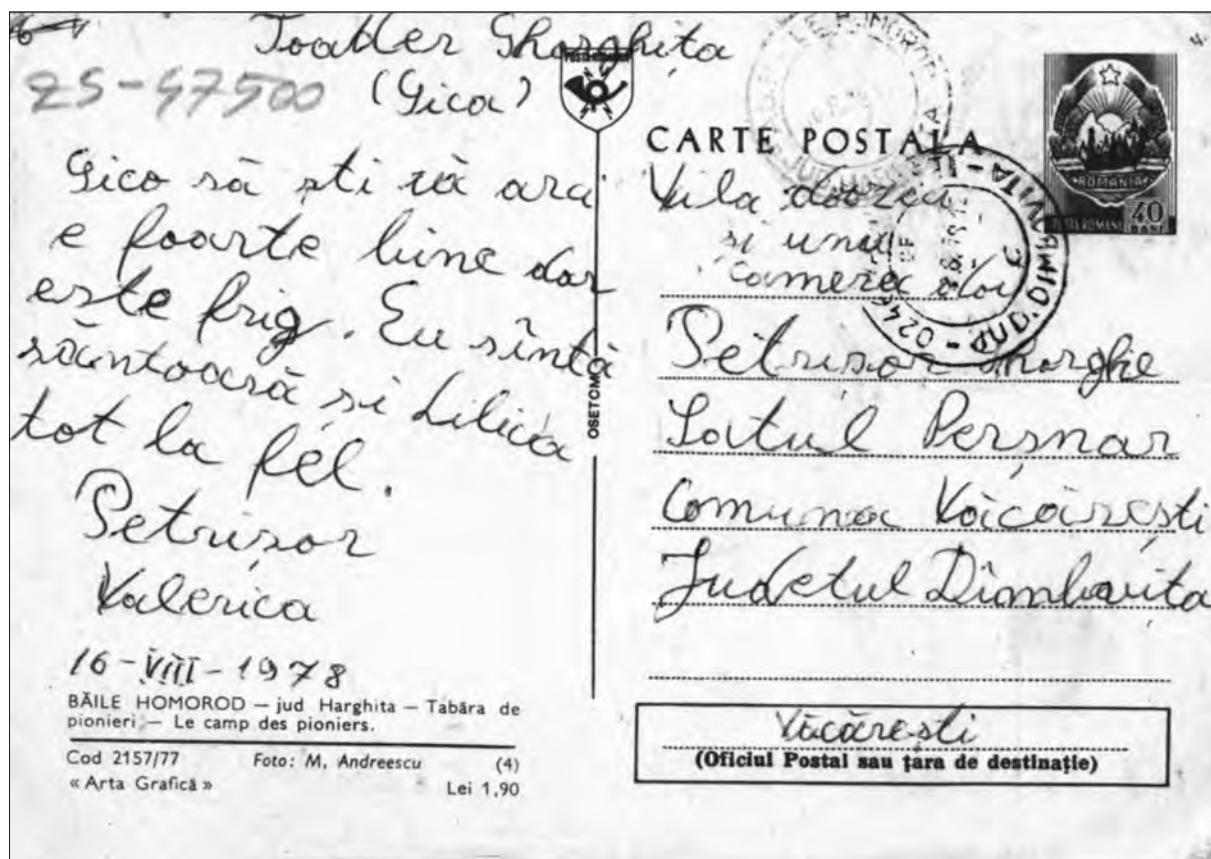 Toadler Ghorghița
25-47500 (Gica)
Gico să sti că aici
e foarte bine dar
este frig. Eu sîntă
săntoasă si Lilica
tot la fel.
Petrisor
Valerica
16-VIII-1978
BĂILE HOMOROD — jud Harghita — Tabăra de
pionieri — Le camp des pioniers.
Cod 2157/77 Foto: M, Andreescu (4)
« Arta Grafică » Lei 1,90
OSETCM
CARTE POSTALA
ROMANIA
POSTA ROMANA 40 BANI
Vila doozeci
si unu
camera doi
Petrisor Ghorghe
Satul Perșnar
Comuna Văcărești
Judetul Dîmbovita
Văcărești
(Oficiul Postal sau țara de destinație)